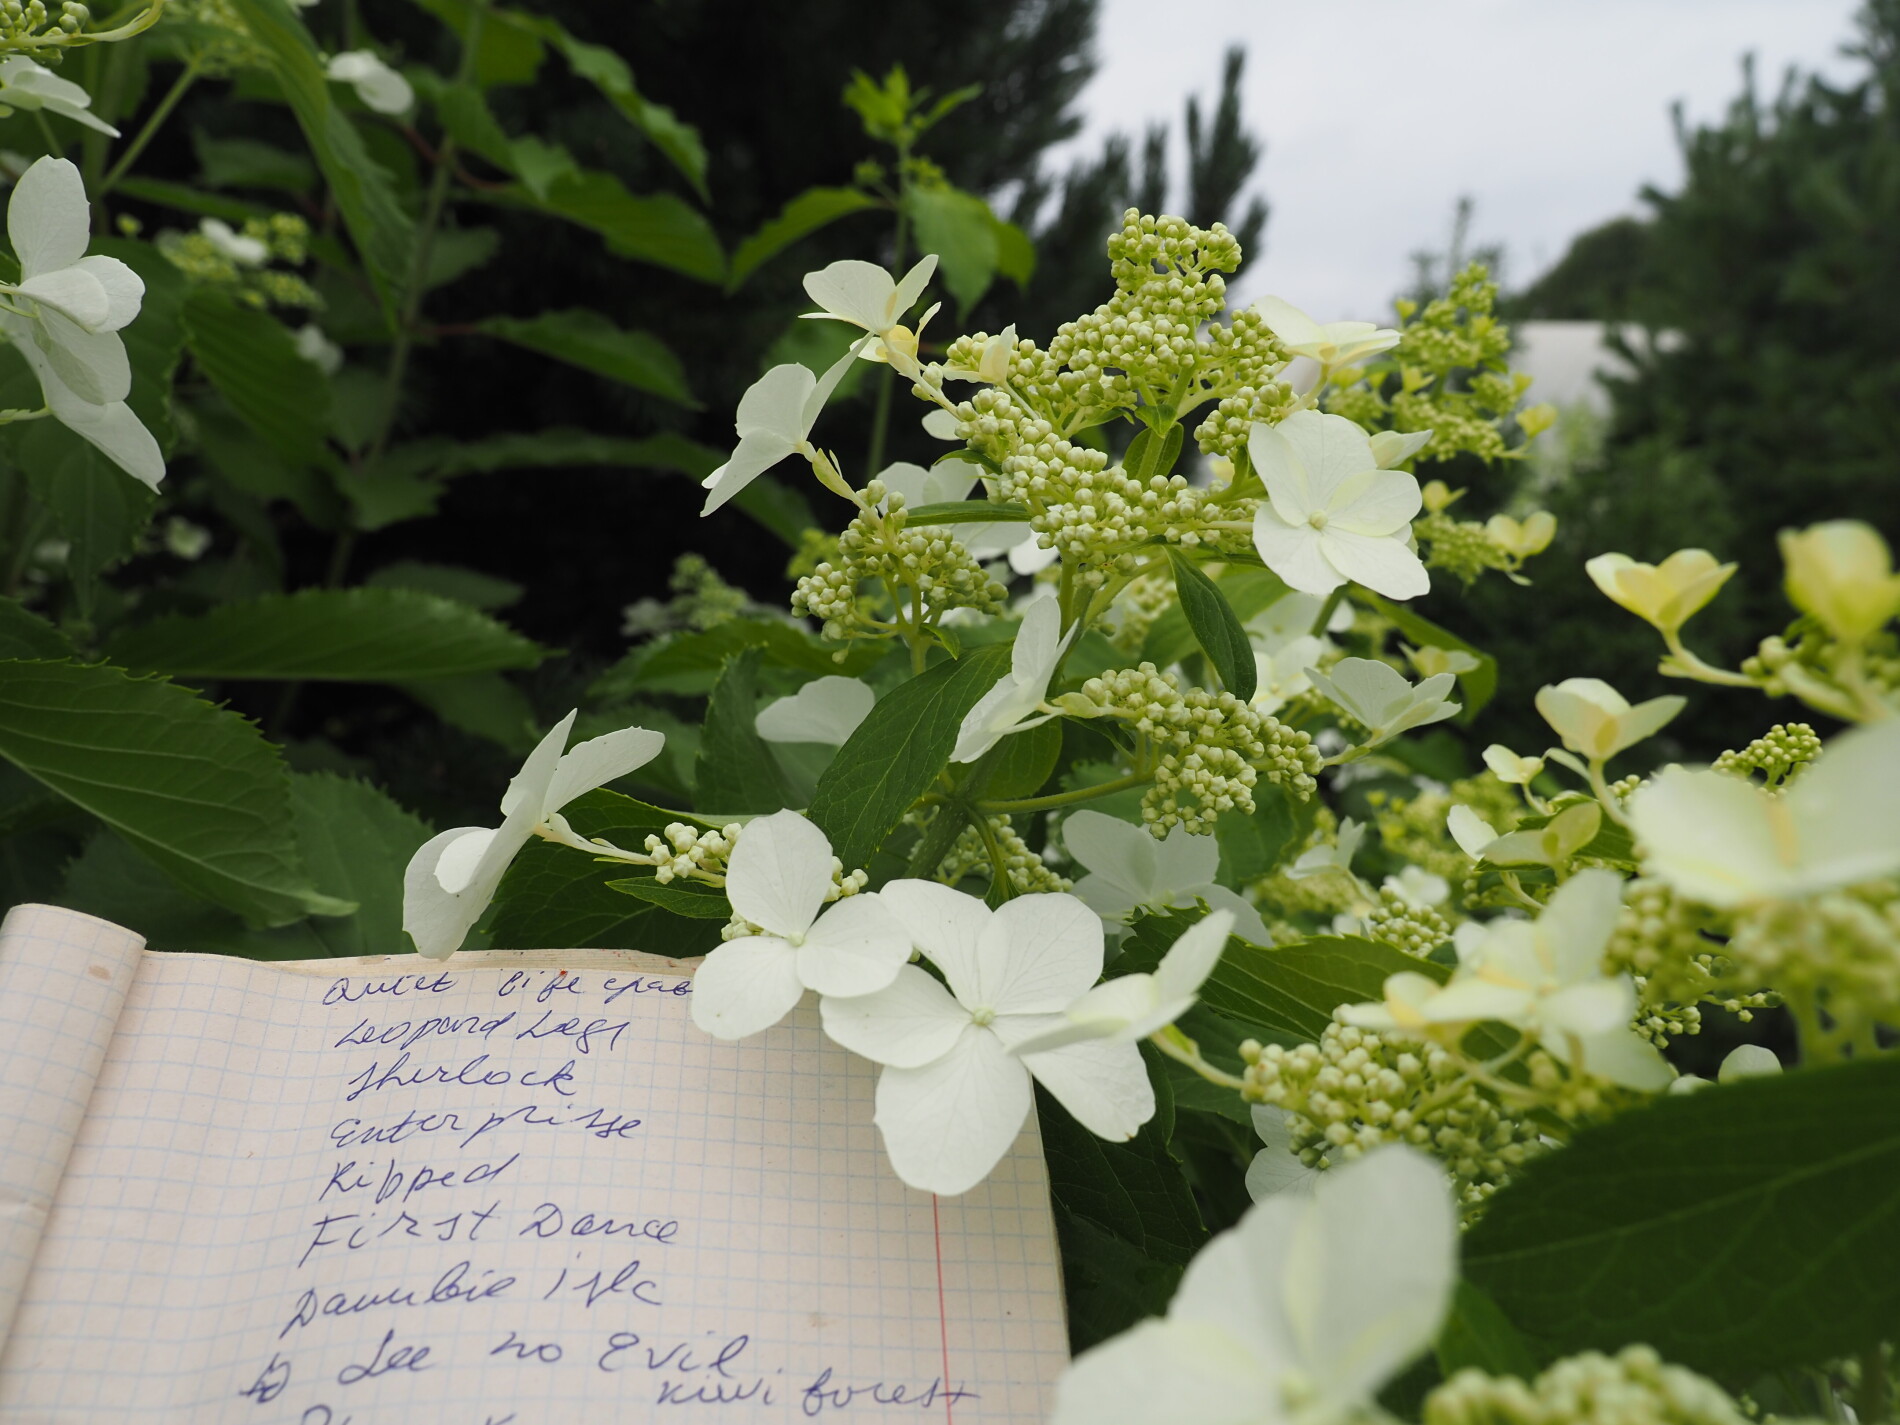 Quiet life
Leopard Legs
Sherlock
Enterprisse
Ripped
First Dance
Danubie isle
See no Evil
kiwi forest